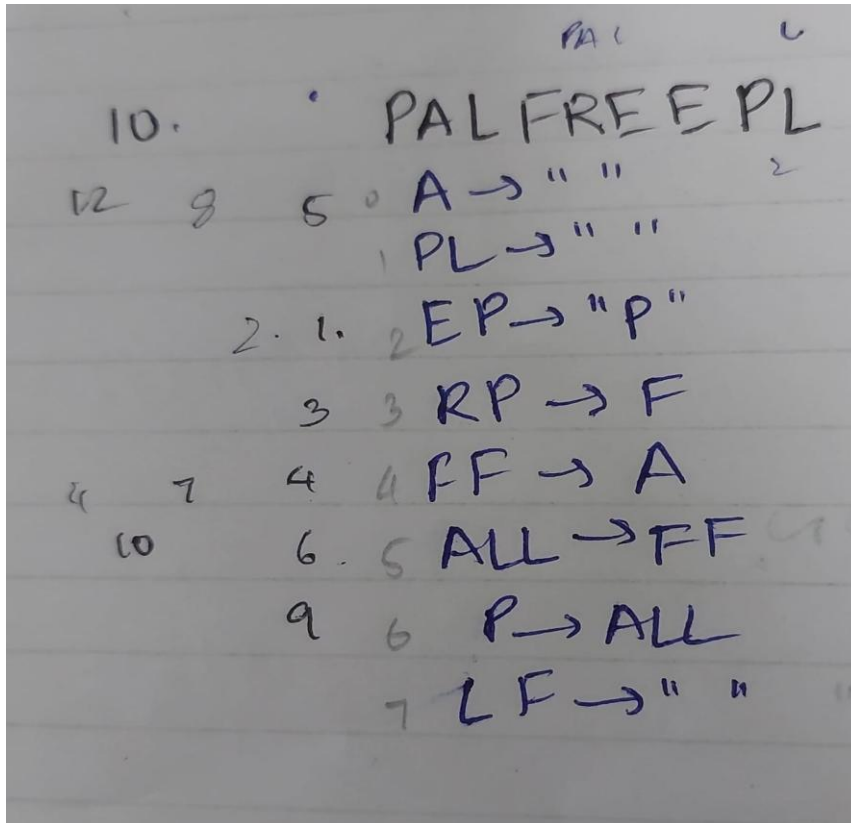 PAL L
10. PALFREEPL
12 8 5 0 A → " " 2
1 PL → " "
2. 1. 2 EP → "P"
3 3 RP → F
4 7 4 4 FF → A
10 6. 5 ALL → FF
9 6 P → ALL
7 LF → " "